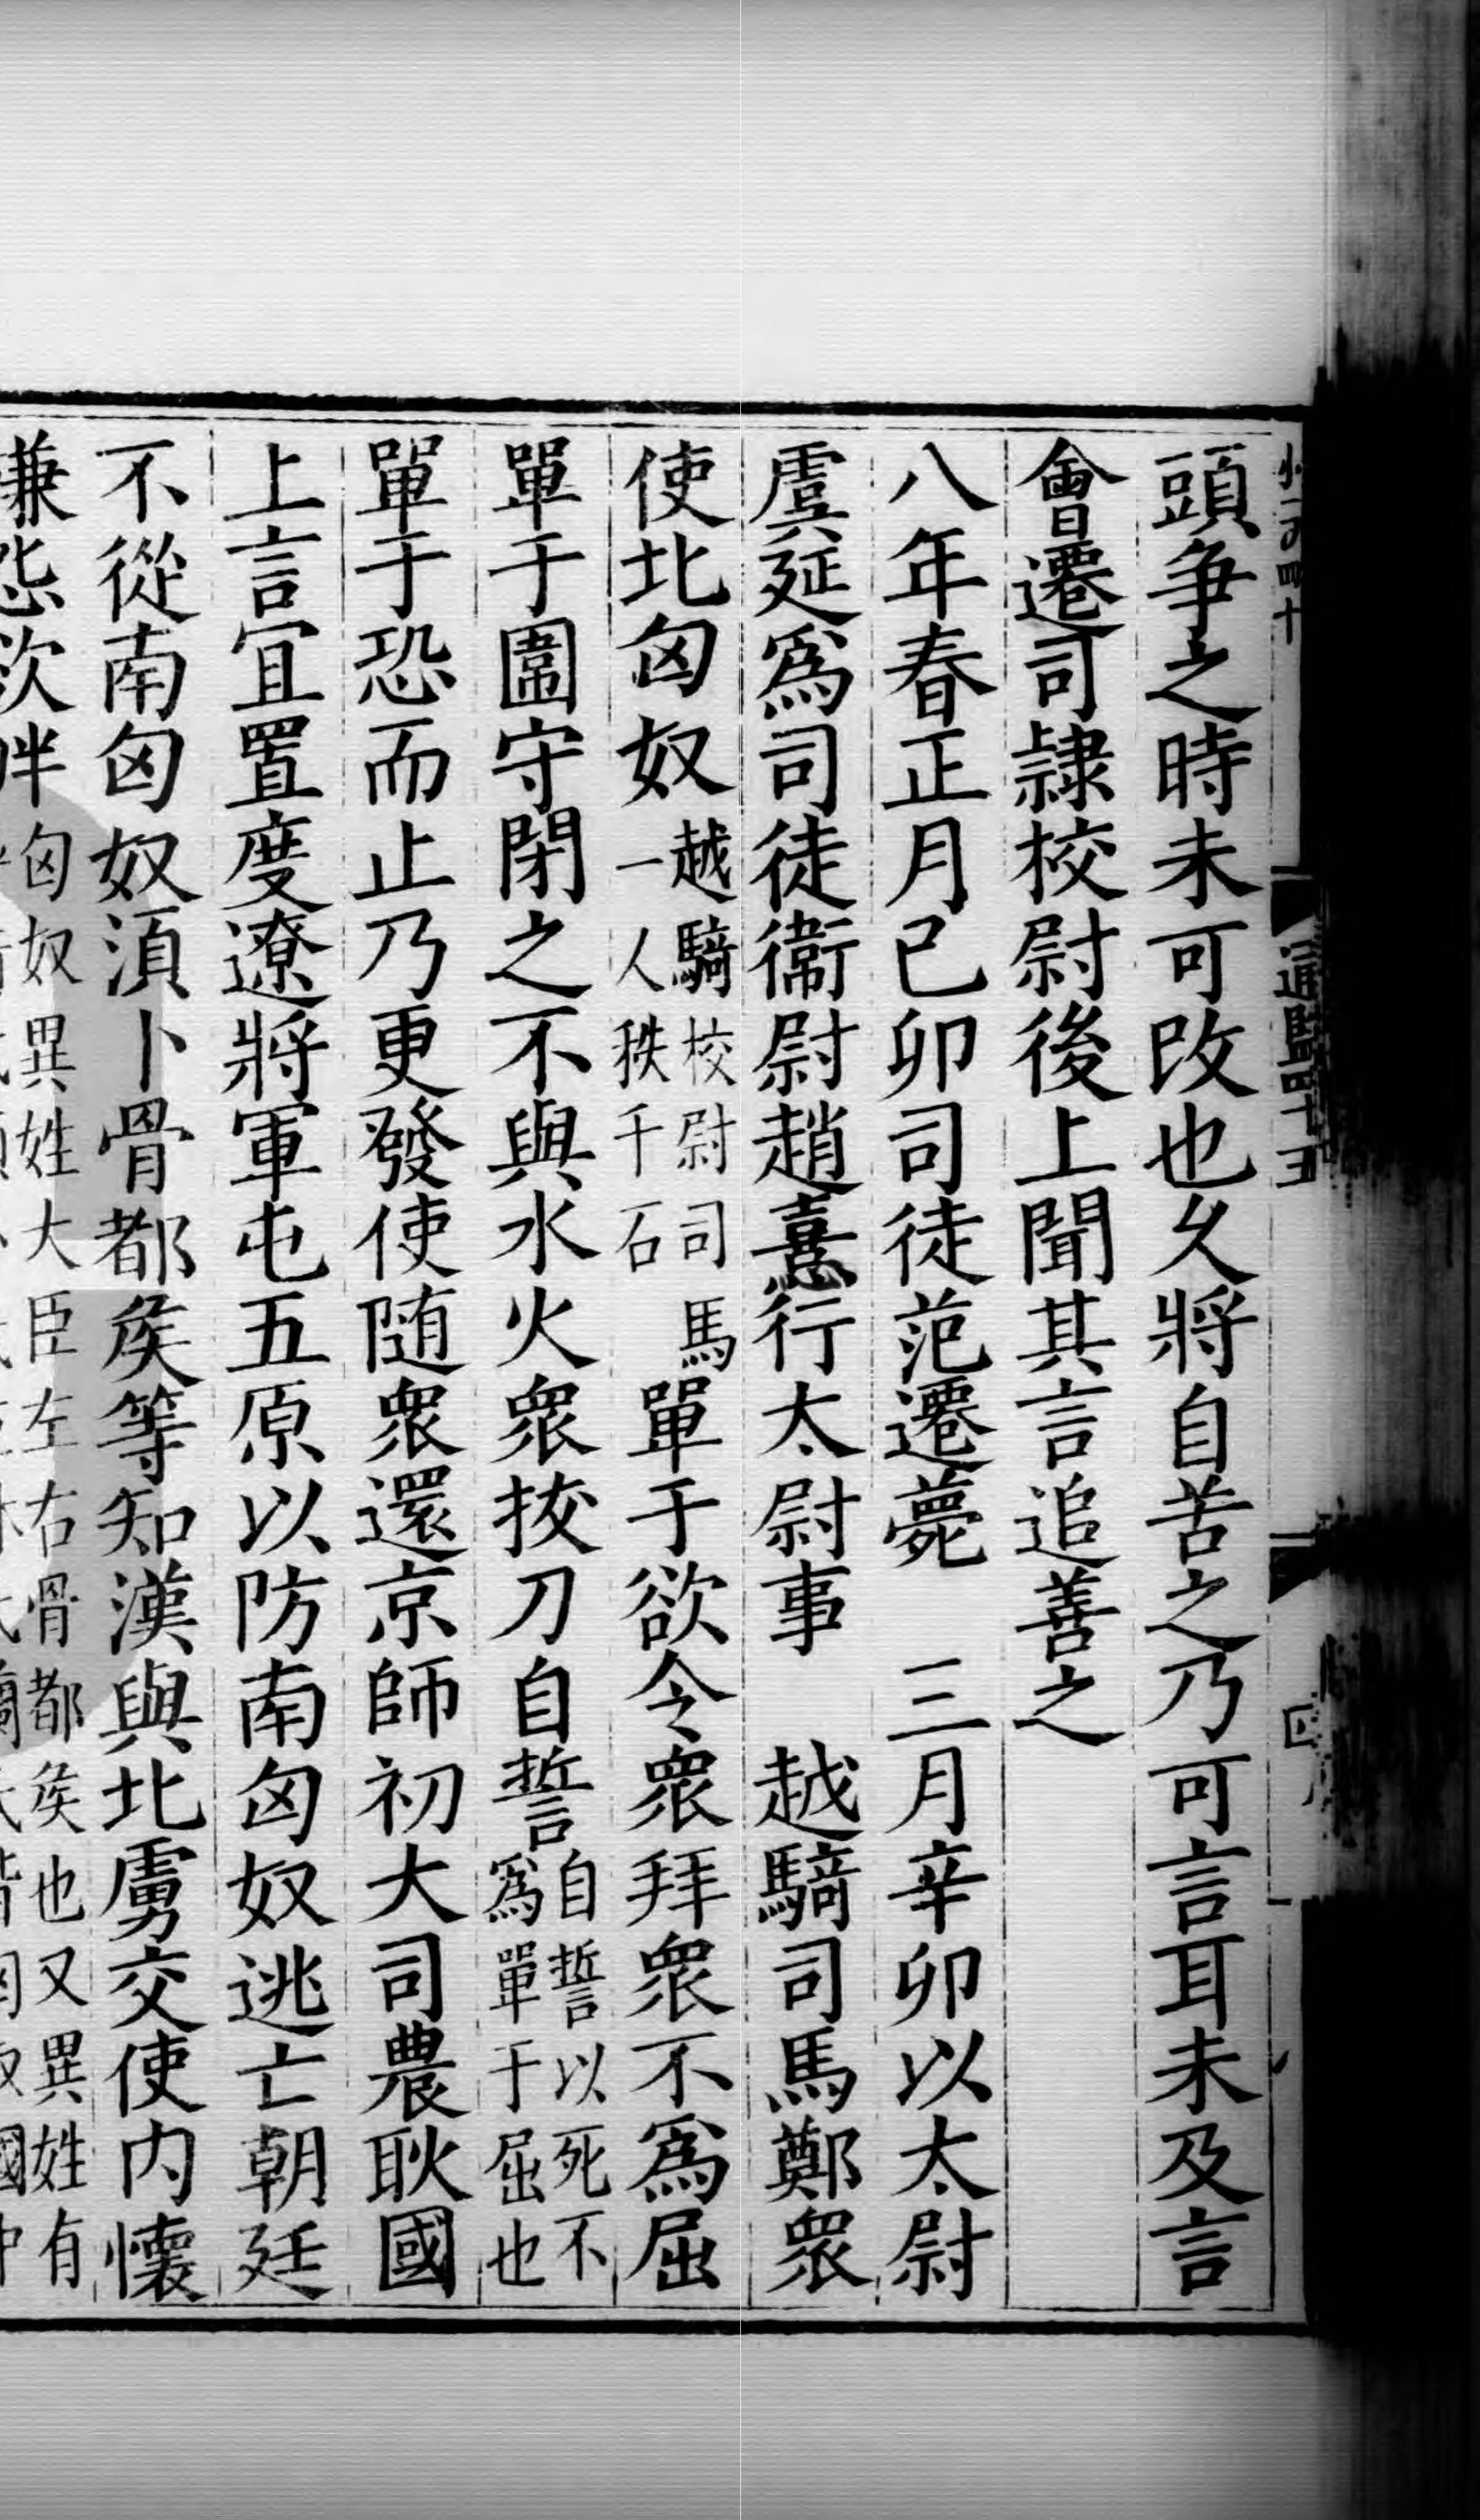 頭爭之時未可改也乆將自苦之乃可言耳未及言
會遷司隷校尉後上聞其言追善之
八年春正月已卯司徒范遷薨 三月辛卯以太尉
虞延爲司徒衞尉趙憙行太尉事 越騎司馬鄭衆
使北匈奴越騎校尉司馬一人秩千石單于欲令衆拜衆不爲屈
單于圍守閉之不與水火衆拔刀自誓自誓以死不爲單于屈也
單于恐而止乃更發使随衆還京師初大司農耿國
上言宜置度遼將軍屯五原以防南匈奴逃亡朝廷
不從南匈奴湏卜骨都矦等知漢與北虜交使内懷
匈奴異姓大臣左右骨都矦也又異姓有
通鑑四十五